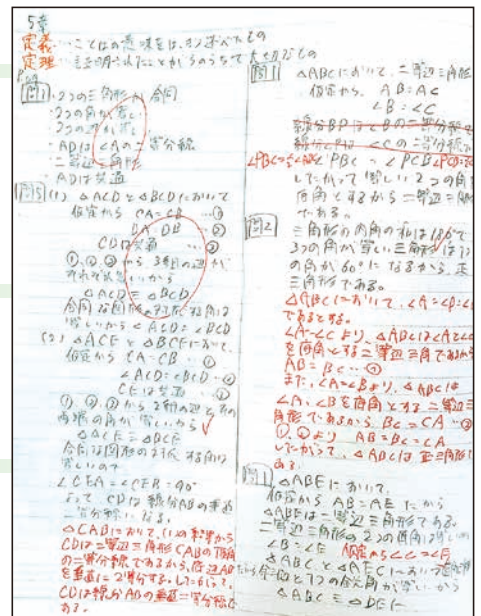 5章
定義…ことばの意味をはっきり述べたもの
定理…証明されたことがらのうちで大切なもの
問1 ・2つの三角形が合同
・2つの角が等しい
・2つの辺が等しい
・ADは∠Aの二等分線
・二等辺三角形
・ADは共通
問5 (1) △ACDと△BCDにおいて
仮定から CA=CB …①
DA=DB …②
CDは共通 …③
①、②、③から 3組の辺が
それぞれ等しいから
△ACD≡△BCD
合同な図形の対応する角は
等しいから∠ACD=∠BCD
(2) △ACEと△BCEにおいて、
仮定から CA=CB …①
∠ACD=∠BCD …②
CEは共通 …③
①、②、③から 2組の辺とその
間の角が等しいから
△ACE≡△BCE
合同な図形の対応する角は
等しいので
∠CEA=∠CEB=90°
よって CDは線分ABの垂直
二等分線になる。
△CABにおいて、(1)の結果から
CDは二等辺三角形CABの頂角
の二等分線であるから、底辺AB
を垂直に2等分する。したがって、
CDは線分ABの垂直二等分線で
ある。
問1 △ABCにおいて、二等辺三角形
仮定から、AB=AC
∠B=∠C
線分BPは∠Bの二等分線
∠Cの二等分線で
∠PBC=∠PCB
したがって 等しい2つの角
底角とするから二等辺三角
である。
問2 三角形の内角の和は180°で
3つの角が等しい三角形は1つ
の角が60°になるから、正
三角形である。
△ABCにおいて、∠A=∠B=∠
であるとする。
∠A=∠Cより、△ABCは∠Aと∠C
を底角とする二等辺三角であるから
AB=BC …①
また、∠A=∠Bより、△ABCは
∠A、∠Bを底角とする二等辺三
角形であるから BC=CA …②
①、②より AB=BC=CA
したがって、△ABCは正三角形で
ある。
問1 △ABEにおいて、
仮定から AB=AE だから
△ABEは二等辺三角形である。
二等辺三角形の2つの底角は等しいの
∠B=∠E